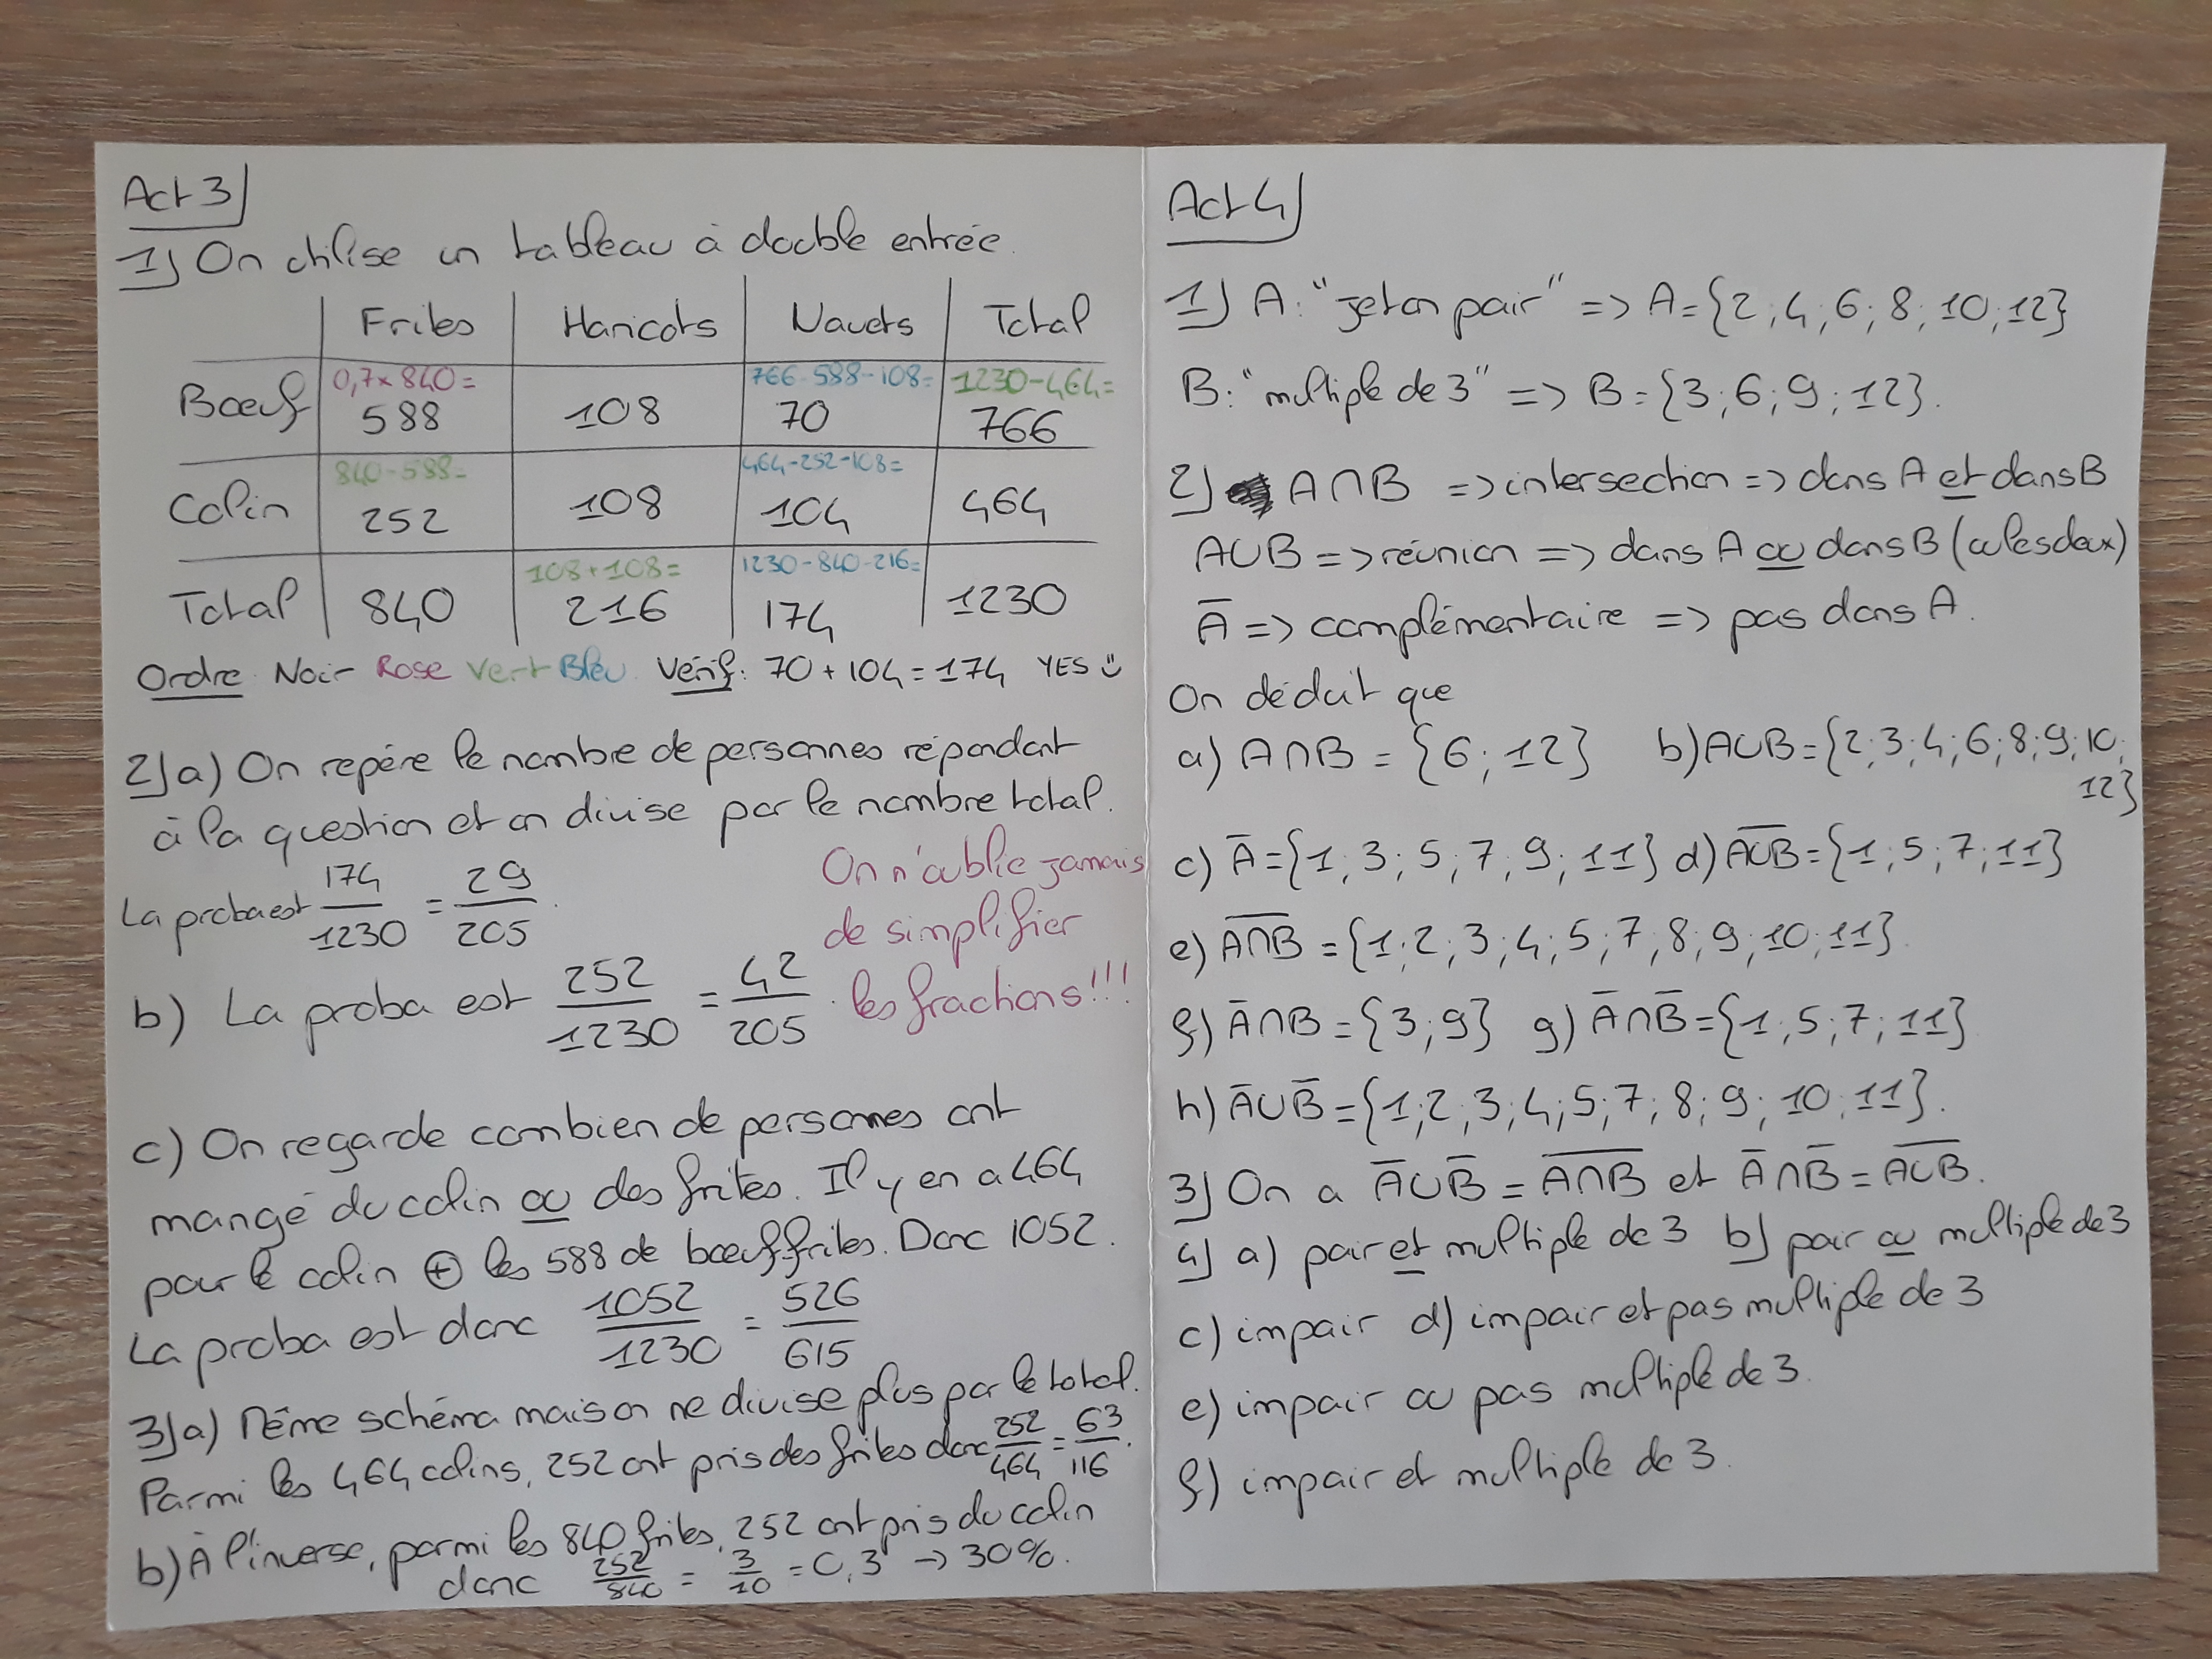 Act 3)
1) On utilise un tableau à double entrée.
Frites Haricots Navets Total
0,7x840= 766-588-108= 1230-464=
Bœuf 588 108 70 766
840-588= 464-252-108=
Colin 252 108 104 464
108+108= 1230-840-216=
Total 840 216 174 1230
Ordre Noir Rose Vert Bleu. Vérif: 70+104=174 YES ☺
2) a) On repère le nombre de personnes répondant
à la question et on divise par le nombre total.
La proba est 174/1230 = 29/205.
On n'oublie jamais
de simplifier
les fractions!!!
b) La proba est 252/1230 = 42/205.
c) On regarde combien de personnes ont
mangé du colin ou des frites. Il y en a 464
pour le colin ⊕ les 588 de bœuf frites. Donc 1052.
La proba est donc 1052/1230 = 526/615
3) a) Même schéma mais on ne divise plus par le total.
Parmi les 464 colins, 252 ont pris des frites donc 252/464 = 63/116.
b) À l'inverse, parmi les 840 frites, 252 ont pris du colin
donc 252/840 = 3/10 = 0,3 → 30%.
Act 4)
1) A: "jeton pair" => A={2;4;6;8;10;12}
B: "multiple de 3" => B={3;6;9;12}.
2) A∩B => intersection => dans A et dans B
A∪B => réunion => dans A ou dans B (ou les deux)
A̅ => complémentaire => pas dans A.
On déduit que
a) A∩B = {6;12} b) A∪B={2;3;4;6;8;9;10;
12}
c) A̅={1;3;5;7;9;11} d) A̅∪̅B̅={1;5;7;11}
e) A̅∩̅B̅={1;2;3;4;5;7;8;9;10;11}
f) A̅∩B={3;9} g) A̅∩B̅={1;5;7;11}
h) A̅∪B̅={1;2;3;4;5;7;8;9;10;11}.
3) On a A̅∪B̅=A̅∩̅B̅ et A̅∩B̅=A̅∪̅B̅.
4) a) pair et multiple de 3 b) pair ou multiple de 3
c) impair d) impair et pas multiple de 3
e) impair ou pas multiple de 3.
f) impair et multiple de 3.